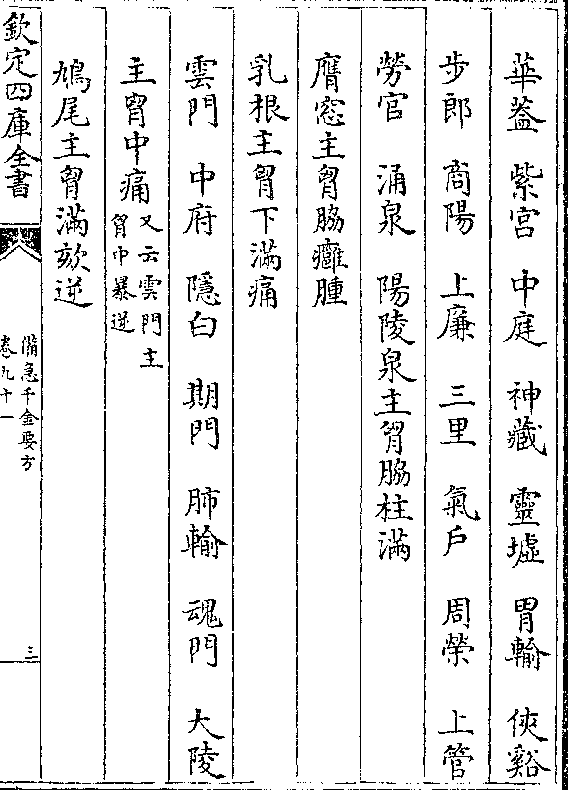 華蓋　紫宮　中庭　神藏　靈墟　胃輸　俠谿
步郎　商陽　上廉　三里　氣戶　周榮　上管
勞宮　涌泉　陽陵泉主胷脇柱滿
膺窓主胷脇癰腫
乳根主胷下滿痛
雲門　中府　隱白　期門　肺輸　魂門　大陵
主胷中痛又云雲門主
胷中暴逆
鳩尾主胷滿欬逆
欽定四庫全書
備急千金要方
卷九十一
三